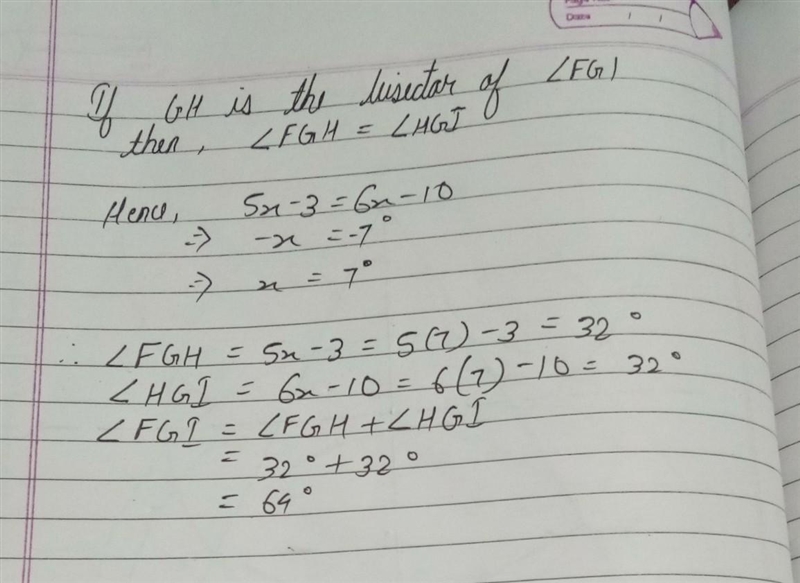 Date / /
If GH is the bisector of ∠FGI
then, ∠FGH = ∠HGI
Hence, 5x-3 = 6x-10
=> -x = -7°
=> x = 7°
∴ ∠FGH = 5x-3 = 5(7)-3 = 32°
∠HGI = 6x-10 = 6(7)-10 = 32°
∠FGI = ∠FGH + ∠HGI
= 32° + 32°
= 64°